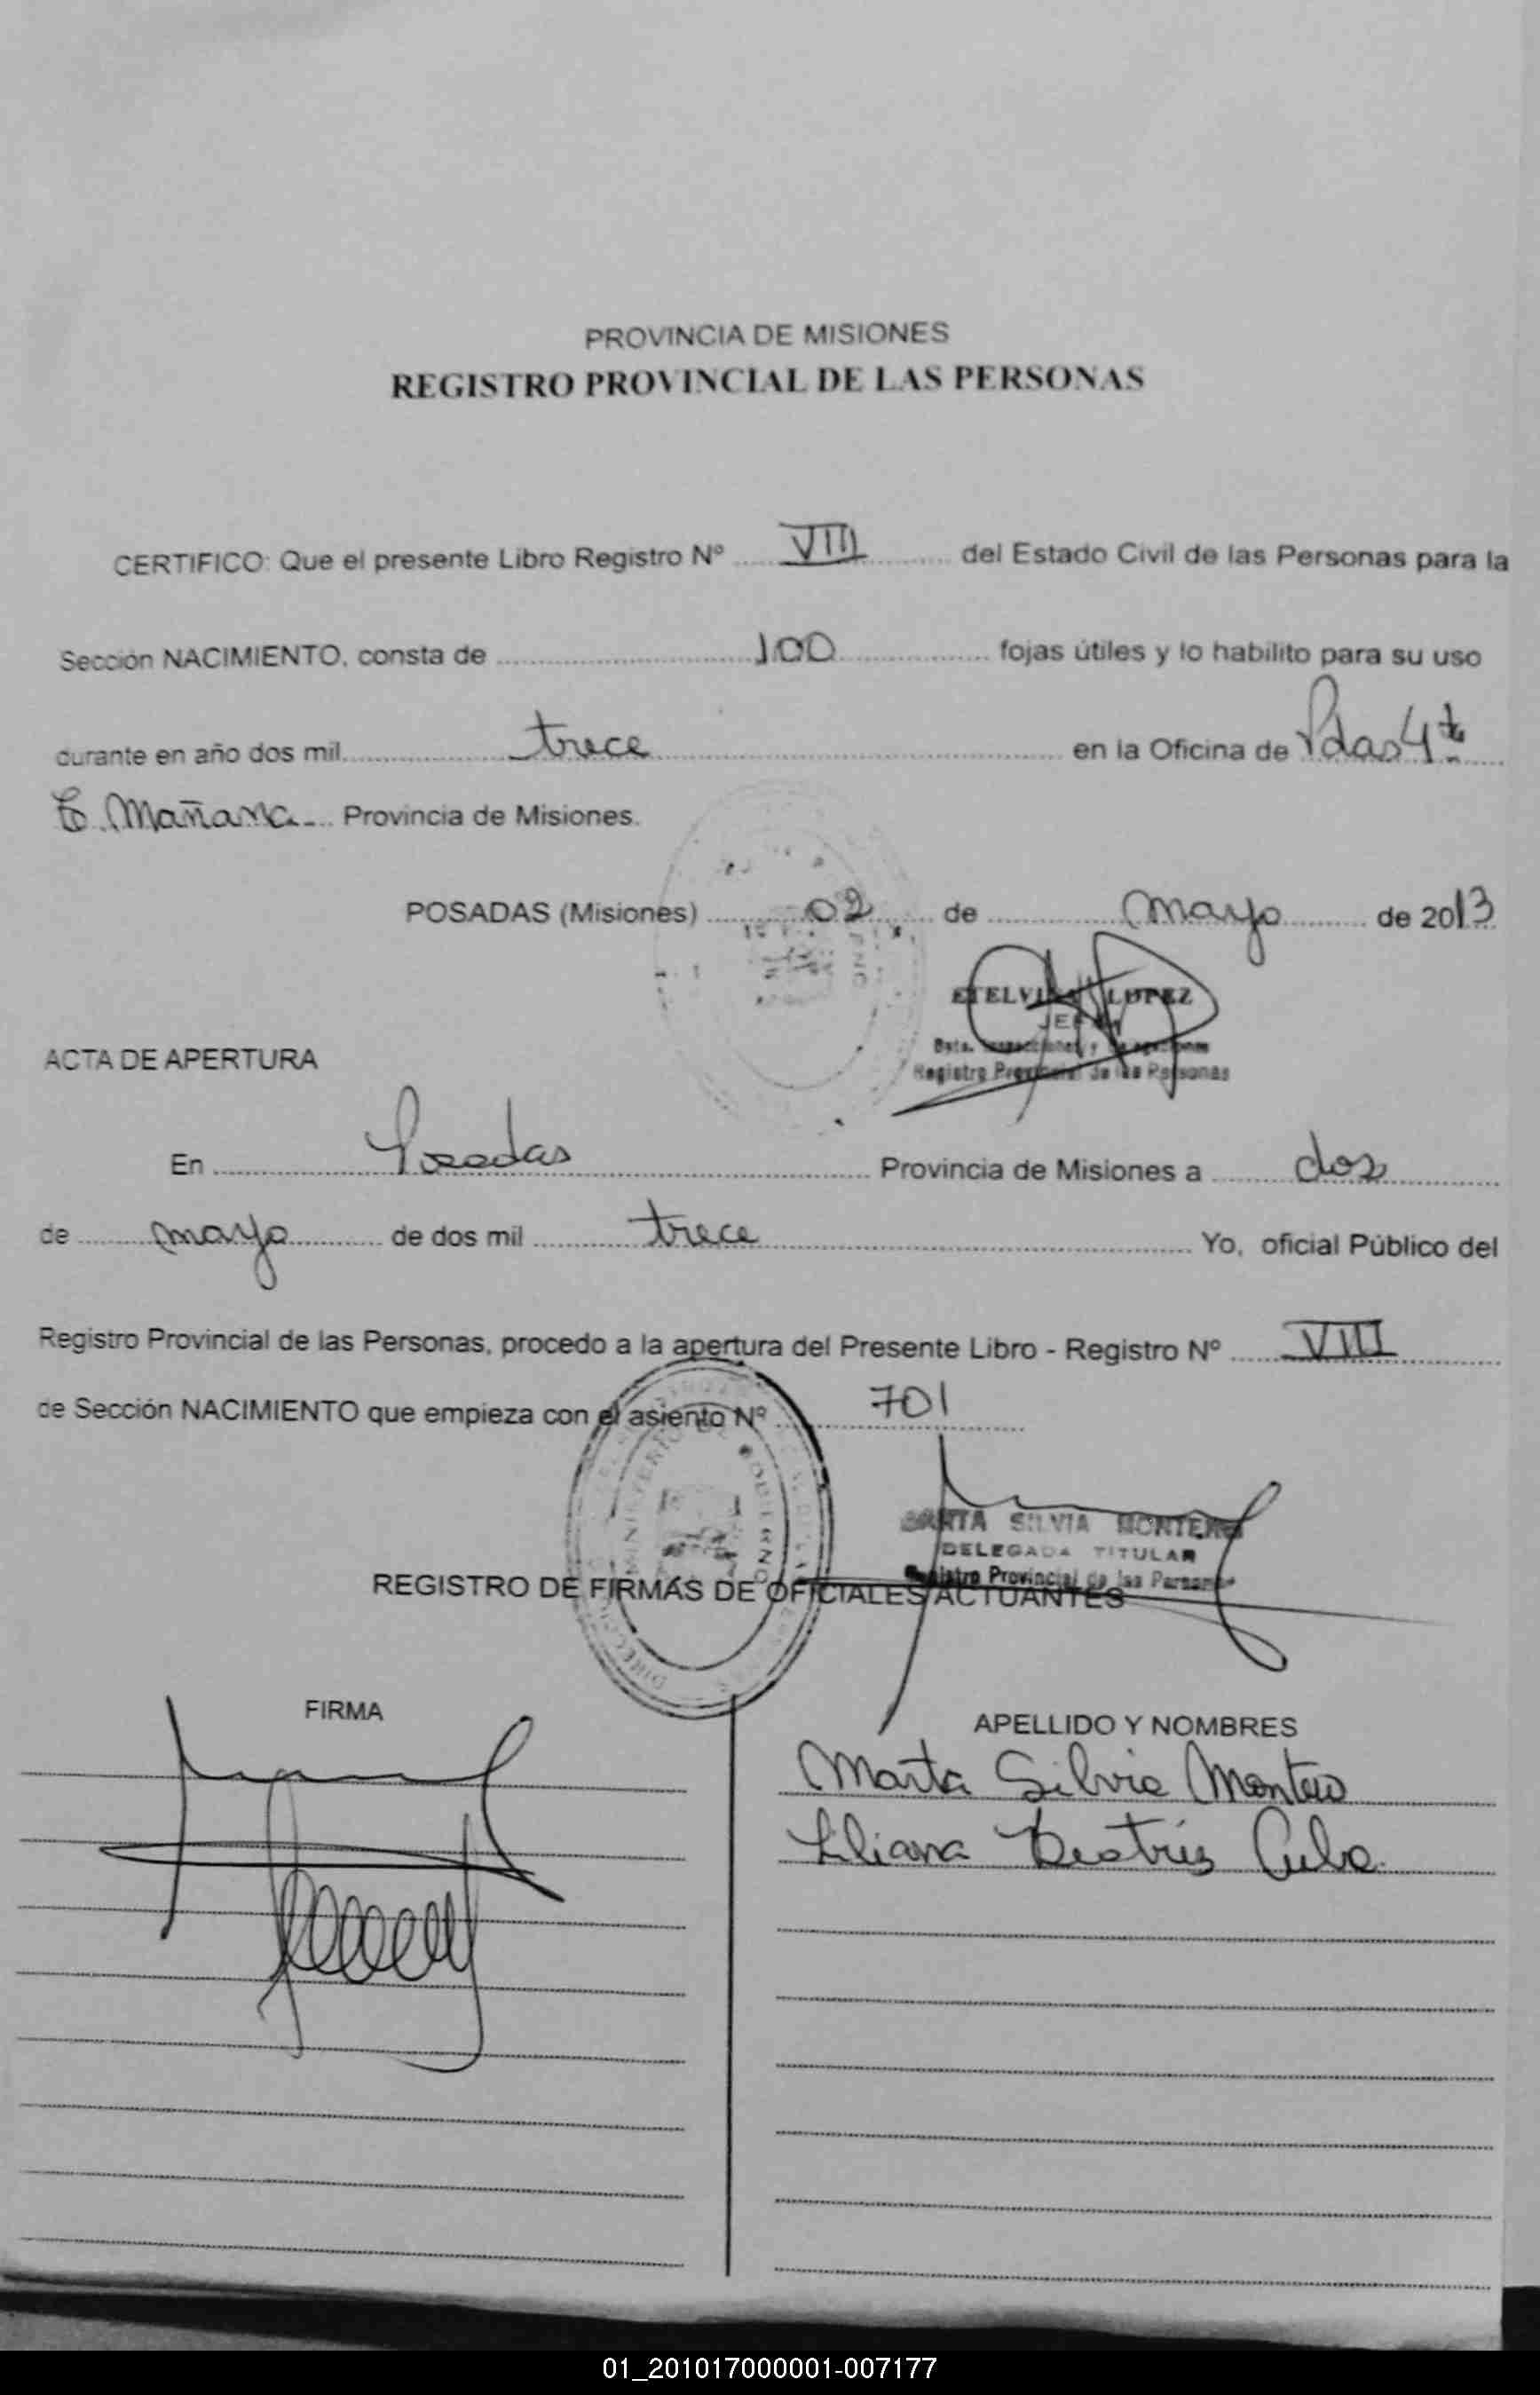 PROVINCIA DE MISIONES
REGISTRO PROVINCIAL DE LAS PERSONAS
CERTIFICO: Que el presente Libro Registro Nº VIII del Estado Civil de las Personas para la
Sección NACIMIENTO, consta de 100 fojas útiles y lo habilito para su uso
durante en año dos mil trece en la Oficina de Pdas 4ta
Mañana Provincia de Misiones.
POSADAS (Misiones) 02 de mayo de 2013
LOPEZ
Registro Provincial de las Personas
ACTA DE APERTURA
En Posadas Provincia de Misiones a dos
de mayo de dos mil trece Yo, oficial Público del
Registro Provincial de las Personas, procedo a la apertura del Presente Libro - Registro Nº VIII
de Sección NACIMIENTO que empieza con el asiento Nº 701
MARTA SILVIA MONTERO
DELEGADA TITULAR
Registro Provincial de las Personas
REGISTRO DE FIRMAS DE OFICIALES ACTUANTES
FIRMA
APELLIDO Y NOMBRES
Marta Silvia Montero
Liliana Beatriz
01_201017000001-007177